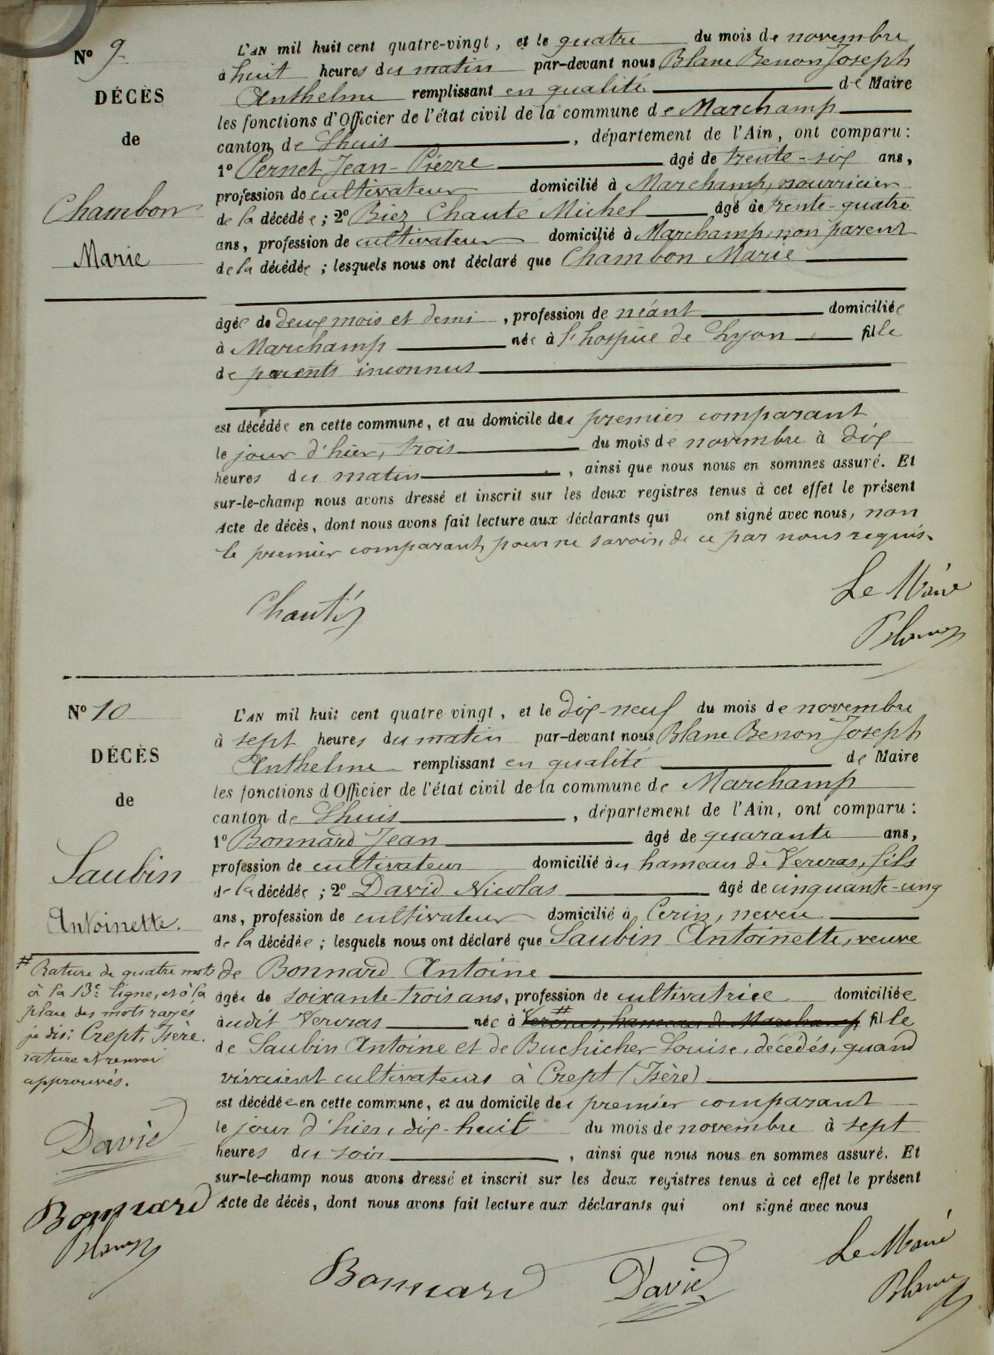 N° 9
DÉCÈS
de
Chambon
Marie
L'AN mil huit cent quatre-vingt, et le quatre du mois de novembre
à huit heures du matin par-devant nous Blanc Benon Joseph
Anthelme remplissant en qualité de Maire
les fonctions d'Officier de l'état civil de la commune de Marchamp
canton de Lhuis, département de l'Ain, ont comparu :
1° Pernet Jean-Pierre âgé de trente-six ans,
profession de cultivateur domicilié à Marchamp, nourricier
de la décédée ; 2° Biez Chanté Michel âgé de trente-quatre
ans, profession de cultivateur domicilié à Marchamp, non parent
de la décédée ; lesquels nous ont déclaré que Chambon Marie
âgée de deux mois et demi, profession de néant domiciliée
à Marchamp née à l'hospice de Lyon fille
de parents inconnus
est décédée en cette commune, et au domicile du premier comparant
le jour d'hier, trois du mois de novembre à dix
heures du matin, ainsi que nous nous en sommes assuré. Et
sur-le-champ nous avons dressé et inscrit sur les deux registres tenus à cet effet le présent
Acte de décès, dont nous avons fait lecture aux déclarants qui ont signé avec nous, non
le premier comparant, pour ne savoir, de ce par nous requis.
Chanté
Le Maire
Blanc
N° 10
DÉCÈS
de
Saubin
Antoinette.
L'AN mil huit cent quatre vingt, et le dix-neuf du mois de novembre
à sept heures du matin par-devant nous Blanc Benon Joseph
Anthelme remplissant en qualité de Maire
les fonctions d'Officier de l'état civil de la commune de Marchamp
canton de Lhuis, département de l'Ain, ont comparu :
1° Bonnard Jean âgé de quarante ans,
profession de cultivateur domicilié au hameau de Vervras, fils
de la décédée ; 2° David Nicolas âgé de cinquante-cinq
ans, profession de cultivateur domicilié à Cerin, neveu
de la décédée ; lesquels nous ont déclaré que Saubin Antoinette, veuve
de Bonnard Antoine
âgée de soixante-trois ans, profession de cultivatrice domiciliée
audit Vervras née à # Vervras, hameau de Marchamp fille
de Saubin Antoine et de Buchicher Louise, décédés, quand
vivaient cultivateurs à Crept (Isère)
est décédée en cette commune, et au domicile du premier comparant
le jour d'hier, dix-huit du mois de novembre à sept
heures du soir, ainsi que nous nous en sommes assuré. Et
sur-le-champ nous avons dressé et inscrit sur les deux registres tenus à cet effet le présent
Acte de décès, dont nous avons fait lecture aux déclarants qui ont signé avec nous
# Rature de quatre mots
à la 13e ligne, et à la
place des mots rayés
je dis: Crept, Isère.
rature et renvoi
approuvés.
David
Bonnard
Blanc
Bonnard
David
Le Maire
Blanc